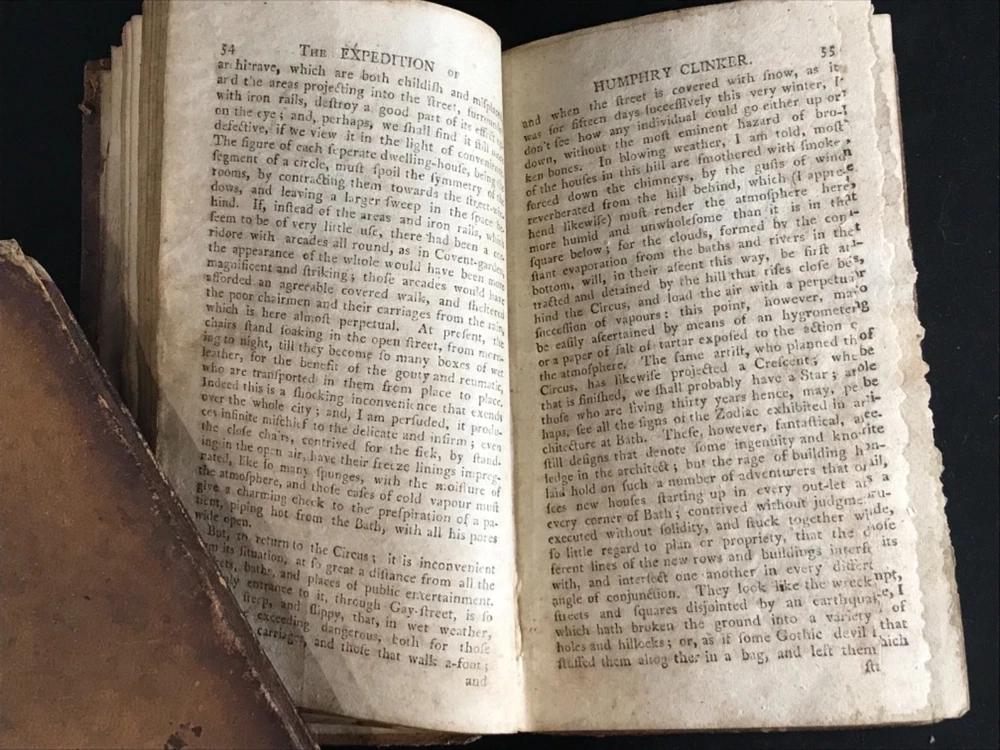 54 THE EXPEDITION OF
architrave, which are both childiſh and miſplaced
and the areas projecting into the ſtreet, ſurrounded
with iron rails, deſtroy a good part of its effect
on the eye; and, perhaps, we ſhall find it ſtill more
defective, if we view it in the light of convenience.
The figure of each ſeperate dwelling-houſe, being the
ſegment of a circle, muſt ſpoil the ſymmetry of the
rooms, by contracting them towards the ſtreet-win-
dows, and leaving a larger ſweep in the ſpace be-
hind. If, inſtead of the areas and iron rails, which
ſeem to be of very little uſe, there had been a cor-
ridore with arcades all round, as in Covent-garden,
the appearance of the whole would have been more
magnificent and ſtriking; thoſe arcades would have
afforded an agreeable covered walk, and ſheltered
the poor chairmen and their carriages from the rain,
which is here almoſt perpetual. At preſent, the
chairs ſtand ſoaking in the open ſtreet, from morn-
ing to night, till they become ſo many boxes of wet
leather, for the benefit of the gouty and reumatic,
who are tranſported in them from place to place.
Indeed this is a ſhocking inconvenience that extends
over the whole city; and, I am perſuded, it produ-
ces infinite miſchief to the delicate and infirm; even
the cloſe chairs, contrived for the ſick, by ſtand-
ing in the open air, have their freeze linings impreg-
nated, like ſo many ſpunges, with the moiſture of
the atmoſphere, and thoſe caſes of cold vapour muſt
give a charming check to the preſpiration of a pa-
tient, piping hot from the Bath, with all his pores
wide open.
But, to return to the Circus; it is inconvenient
its ſituation, at ſo great a diſtance from all the
baths, and places of public entertainment.
entrance to it, through Gay-ſtreet, is ſo
ſteep, and ſlippy, that, in wet weather,
exceeding dangerous, both for thoſe
carriages, and thoſe that walk a-foot;
and
HUMPHRY CLINKER. 55
and when the ſtreet is covered with ſnow, as it
was for fifteen days ſucceſſively this very winter, I
don't ſee how any individual could go either up or
down, without the moſt eminent hazard of bro-
ken bones. In blowing weather, I am told, moſt
of the houſes in this hill are ſmothered with ſmoke,
forced down the chimneys, by the guſts of wind
reverberated from the hill behind, which (I appre-
hend likewiſe) muſt render the atmoſphere here,
more humid and unwholeſome than it is in that
ſquare below; for the clouds, formed by the con-
ſtant evaporation from the baths and rivers in the
bottom, will, in their aſcent this way, be firſt at-
tracted and detained by the hill that riſes cloſe be-
hind the Circus, and load the air with a perpetual
ſucceſſion of vapours: this point, however, may
be eaſily aſcertained by means of an hygrometer
or a paper of ſalt of tartar expoſed to the action of
the atmoſphere. The ſame artiſt, who planned the
Circus, has likewiſe projected a Creſcent; when
that is finiſhed, we ſhall probably have a Star;
thoſe who are living thirty years hence, may, per-
haps, ſee all the ſigns of the Zodiac exhibited in ar-
chitecture at Bath. Theſe, however, fantaſtical, are
ſtill deſigns that denote ſome ingenuity and know-
ledge in the architect; but the rage of building has
laid hold on ſuch a number of adventurers that one
ſees new houſes ſtarting up in every out-let and
every corner of Bath; contrived without judgment,
executed without ſolidity, and ſtuck together with
ſo little regard to plan or propriety, that the dif-
ferent lines of the new rows and buildings interfere
with, and interſect one another in every different
angle of conjunction. They look like the wreck
ſtreets and ſquares disjointed by an earthquake,
which hath broken the ground into a variety of
holes and hillocks; or, as if ſome Gothic devil
ſtuffed them altogether in a bag, and left them